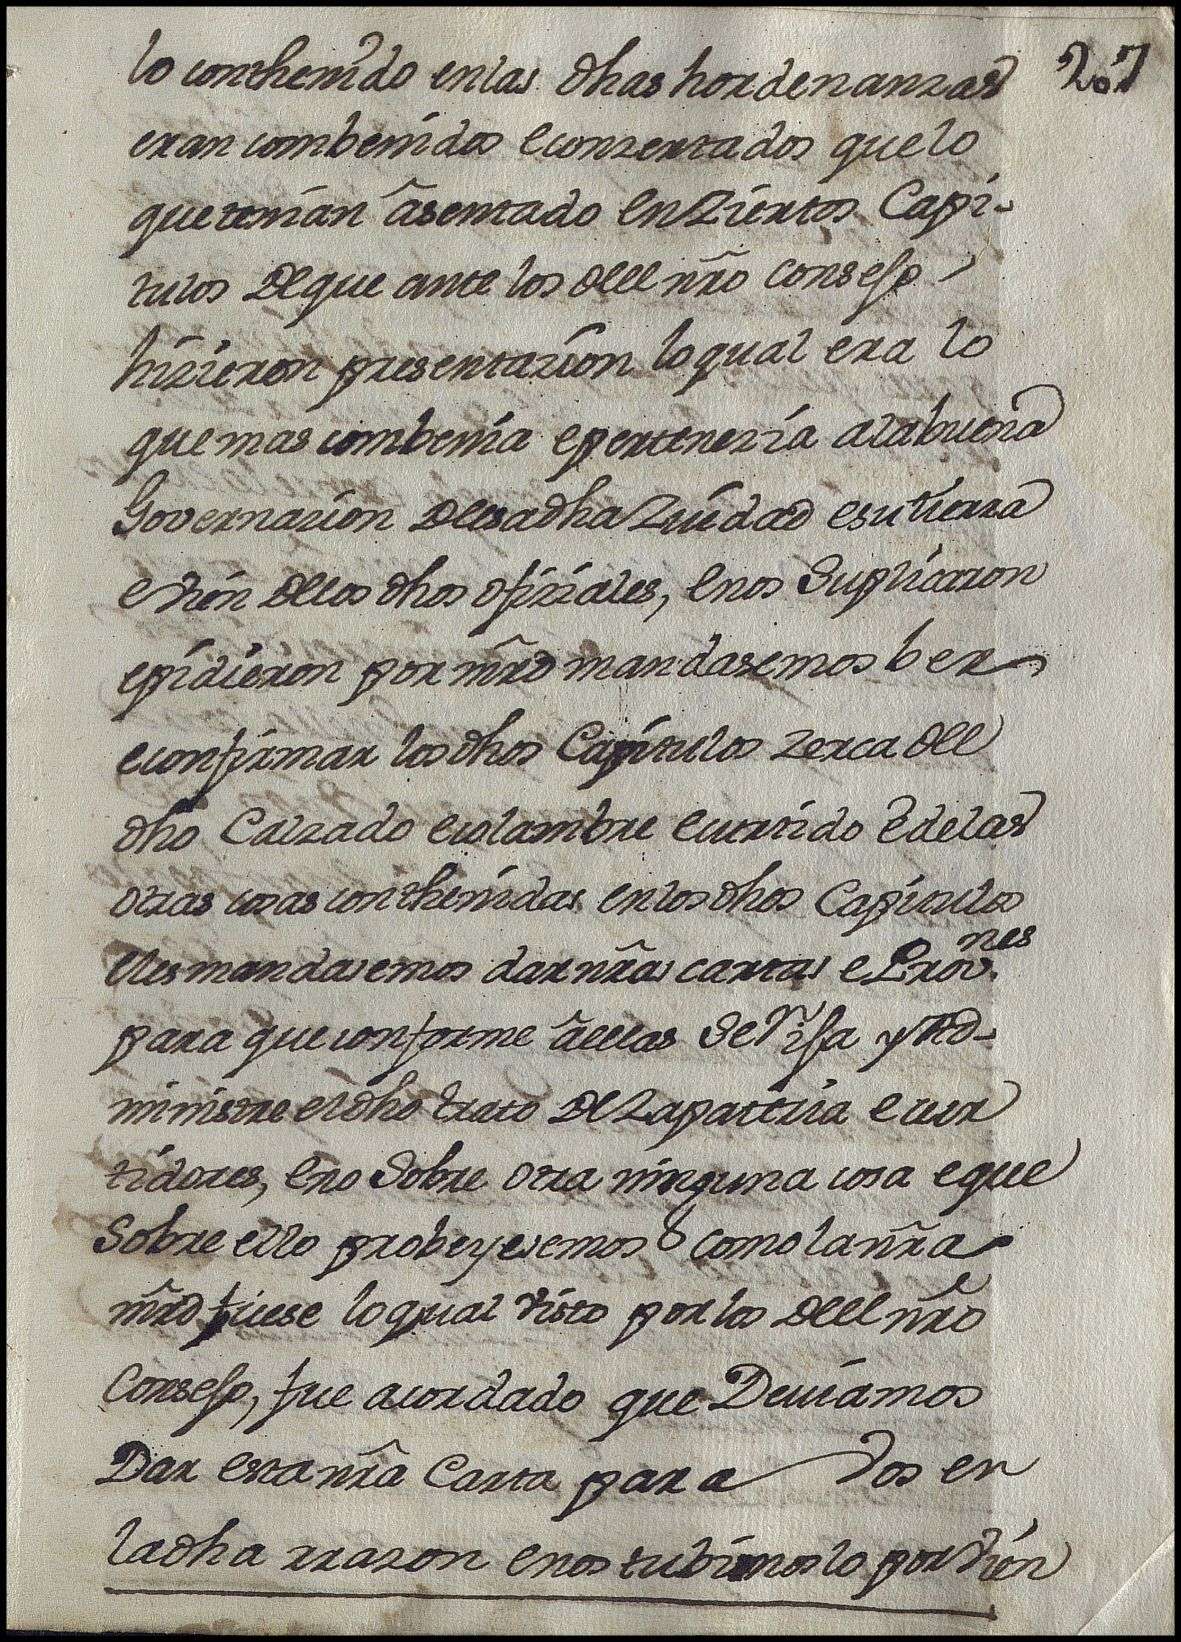 207
lo conthenido en las dhas hordenanzas
eran combenidos e conzertados que lo
que tenian âsentado en Ziertos Capi-
tulos de que ante los dell nrõ Consejo
hizieron presentazion lo qual era lo
que mas combenia e pertenezia a la buena
Governazion dessa dha Ziudad e su tierra
e vien de los dhos ofiziales, e nos Suplicaron
e pidieron por mrd mandasemos ber
e confirmar los dhos Capitulos zerca dell
dho Calzado e colambre e curtido E de las
otras cosas conthenidas en los dhos Capitulos
e les mandasemos dar nrãs cartas e Provnes
para que conforme âellas Se rija y Ad-
ministre el dho trato de Zapateria e cur
tidores, e no Sobre otra ninguna cosa e que
Sobre ello probeyesemos como la nrã
mrd fuese lo qual visto por los dell nrõ
Consejo, fue acordado que Deviamos
Dar esta nrã Carta para Vos en
la dha rrazon e nos tubimoslo por vien